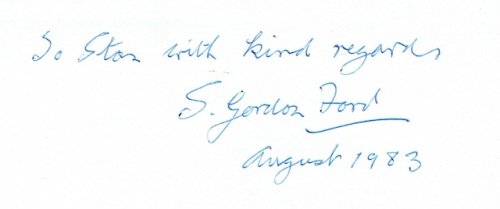 To Stan with kind regards
S. Gordon Ford
August 1983